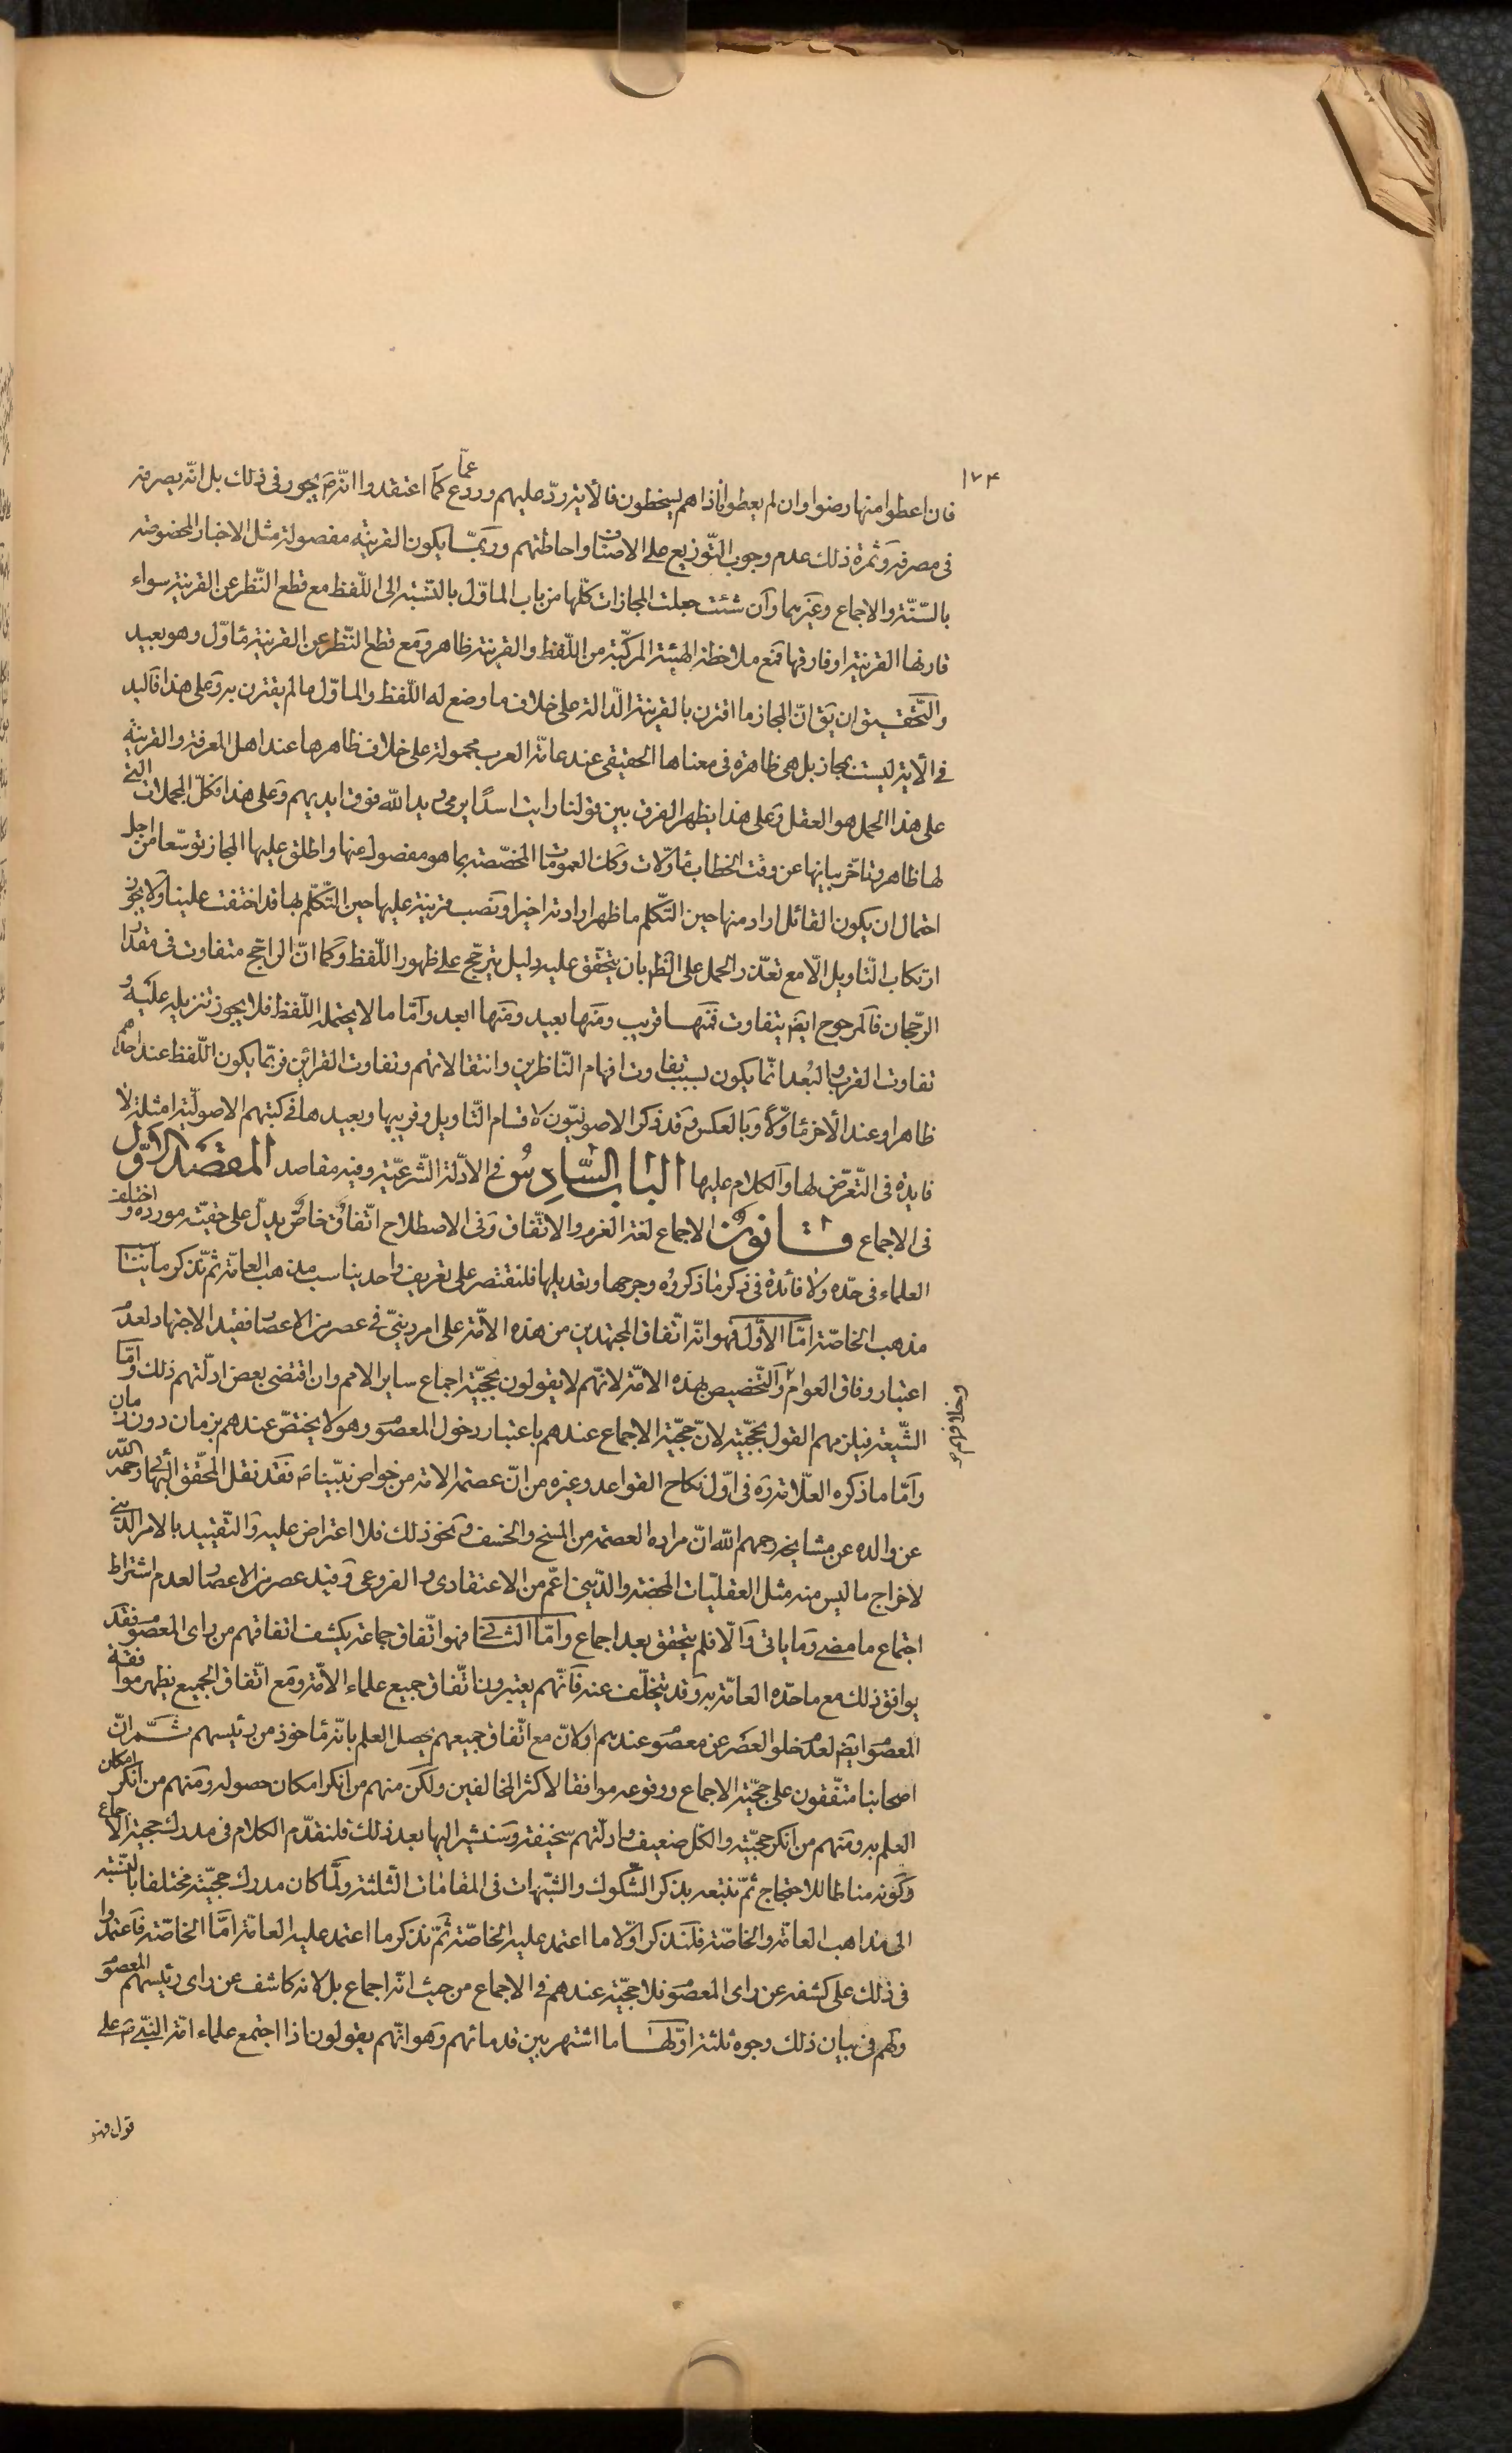 ١٧۴
فان اعطوا منها رضوا وان لم يعطوا اذا هم يسخطون فالاية ردّ عليهم وردع عمّا كما اعتقدوا انّه ص يجور فى ذلك بل انّه يصرفه
فى مصرفه وثمرة ذلك عدم وجوب التّوزيع على الاصناف واحاطتهم وربّما يكون القرينة مفصولة مثل الاخبار المخصوصة
بالسّنّة والاجماع وغيرهما وان شئت جعلت المجازات كلّها من باب الماوّل بالنّسبة الى اللّفظ مع قطع النّظر عن القرينة سواء
قارنها القرينة او فارقها فمع ملاحظة الهيئة المركّبة من اللّفظ والقرينة ظاهر ومع قطع النّظر عن القرينة مأوّل وهو بعيد
والتّحقيق ان يق انّ المجاز ما اقترن بالقرينة الدّالة على خلاف ما وضع له اللّفظ والماوّل ما لم يقترن به وعلى هذا فاليد
فى الاية ليست بمجاز بل هى ظاهرة فى معناها الحقيقى عند عامّة العرب محمولة على خلاف ظاهرها عند اهل المعرفة والقرينة
على هذا الحمل هو العقل وعلى هذا يظهر الفرق بين قولنا رايت اسدًا يرمى ويد الله فوق ايديهم وعلى هذا فكلّ المجملات الّتى
لها ظاهر وتاخّر بيانها عن وقت الخطاب مأوّلات وكك العمومات المخصّصة بما هو مفصول عنها واطلق عليها المجاز توسّعا من اجل
احتمال ان يكون القائل اراد منها حين التّكلّم ما ظهر ارادته اخيرا ونصب قرينة عليها حين التّكلّم بها قد اختفت علينا ولا يجوز
ارتكاب التّاويل الّا مع تعذّر الحمل على الظّ بان يتحقّق عليه دليل يترجّح على ظهور اللّفظ وكما انّ الراجح متفاوت فى مقدار
الرّجحان فالمرجوح ايض يتفاوت فمنها قريب ومنها بعيد ومنها ابعد وامّا ما لا يحتمله اللّفظ فلا يجوز تنزيله عليه و
تفاوت القرب والبُعد انّما يكون بسبب تفاوت افهام النّاظرين وانتقالاتهم وتفاوت القرائن فربّما يكون اللّفظ عند احدهم
ظاهرا وعند الاخر مأوّلًا وبالعكس وقد ذكر الاصوليّون لاقسام التّاويل وقريبها وبعيدها فى كتبهم الاصوليّة امثلة لا
فايدة فى التّعرّض لها والكلام عليها الباب السّادس فى الادلّة الشّرعيّة وفيه مقاصد المقصد الاوّل
فى الاجماع قانون الاجماع لغة العزم والاتّفاق وفى الاصطلاح اتّفاق خاصّ يدلّ على حقيّة مورده واختلف
العلماء فى حدّه ولا فائدة فى ذكر ما ذكروه وجرحها وتعديلها فلنقتصر على تعريف واحد يناسب مذهب العامّة ثمّ نذكر ما يناسب
مذهب الخاصّة امّا الاوّل فهو انّه اتّفاق المجتهدين من هذه الامّة على امر دينىّ فى عصر من الاعصار فقيد الاجتهاد لعدم
اعتبار وفاق العوام والتّخصيص بهذه الامّة لانّهم لا يقولون بحجيّة اجماع ساير الامم وان اقتضى بعض ادلّتهم ذلك وامّا
الشّيعة فيلزمهم القول بحجيّته لانّ حجيّة الاجماع عندهم باعتبار دخول المعصوم وهو لا يختصّ عندهم بزمان دون زمان
وامّا ما ذكره العلّامة ره فى اوّل نكاح القواعد وغيره من انّ عصمة الامة من خواص نبيّنا ص فقد نقل المحقّق البهائى رحمه الله
عن والده عن مشايخه رحمهم الله انّ مراده العصمة من المسخ والخسف ونحو ذلك فلا اعتراض عليه والتّقييد بالامر الدّينى
لاخراج ما ليس منه مثل العقليّات المحضة والدّينى اعّم من الاعتقادى والفروعى وقيد عصر من الاعصار لعدم اشتراط
اجتماع ما مضى وما ياتى والّا فلم يتحقق بعد اجماع وامّا الثانى فهو اتّفاق جماعة يكشف اتفاقهم من راى المعصوم فقد
يوافق ذلك مع ما حدّه العامّة به وقد يتخلّف عنه فانّهم يعتبرون اتّفاق جميع علماء الامّة ومع اتّفاق الجميع يظهر موافقة
المعصوم ايض لعدم خلو العصر عن معصوم عندهم او لانّ مع اتّفاق جميعهم يحصل العلم بانّه مأخوذ من رئيسهم ثمّ انّ
اصحابنا متّفقون على حجيّة الاجماع ووقوعه موافقا لاكثر المخالفين ولكن منهم من انكر امكان حصوله ومنهم من انكر امكان
العلم به ومنهم من انكر حجيّته والكلّ ضعيف وادلّتهم سخيفة وسنشير اليها بعد ذلك فلنقدّم الكلام فى مدرك حجيّة الاجماع
وكونه مناطا للاحتجاج ثمّ نتبعه بذكر الشكوك والشّبهات فى المقامات الثلثة ولمّا كان مدرك حجيّته مختلفا بالنّسبة
الى مذاهب العامّة والخاصّة فلنذكر اوّلا ما اعتمد عليه الخاصّة ثمّ نذكر ما اعتمد عليه العامّة امّا الخاصّة فاعتمدوا
فى ذلك على كشفه عن راى المعصوم فلا حجيّة عندهم فى الاجماع من حيث انّه اجماع بل لانه كاشف عن راى رئيسهم المعصوم
ولهم فى بيان ذلك وجوه ثلثة اوّلها ما اشتهر بين قدمائهم وهو انّهم يقولون اذا اجتمع علماء امّة النبّى ص على
قول فهو